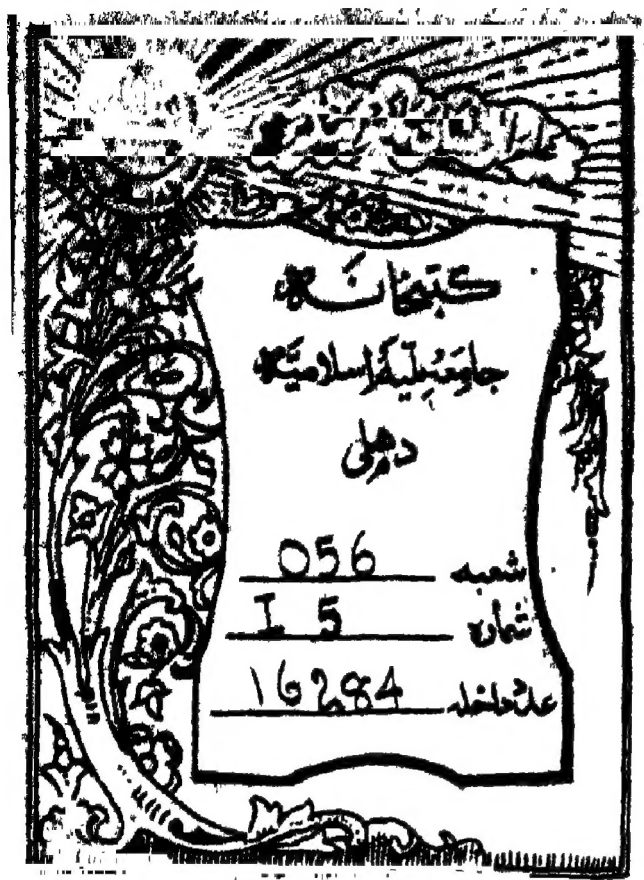 کتبخانہ
جامعہ ملیہ اسلامیہ
دھلی
شعبہ 056
شمارہ I 5
عدد داخلہ 16284